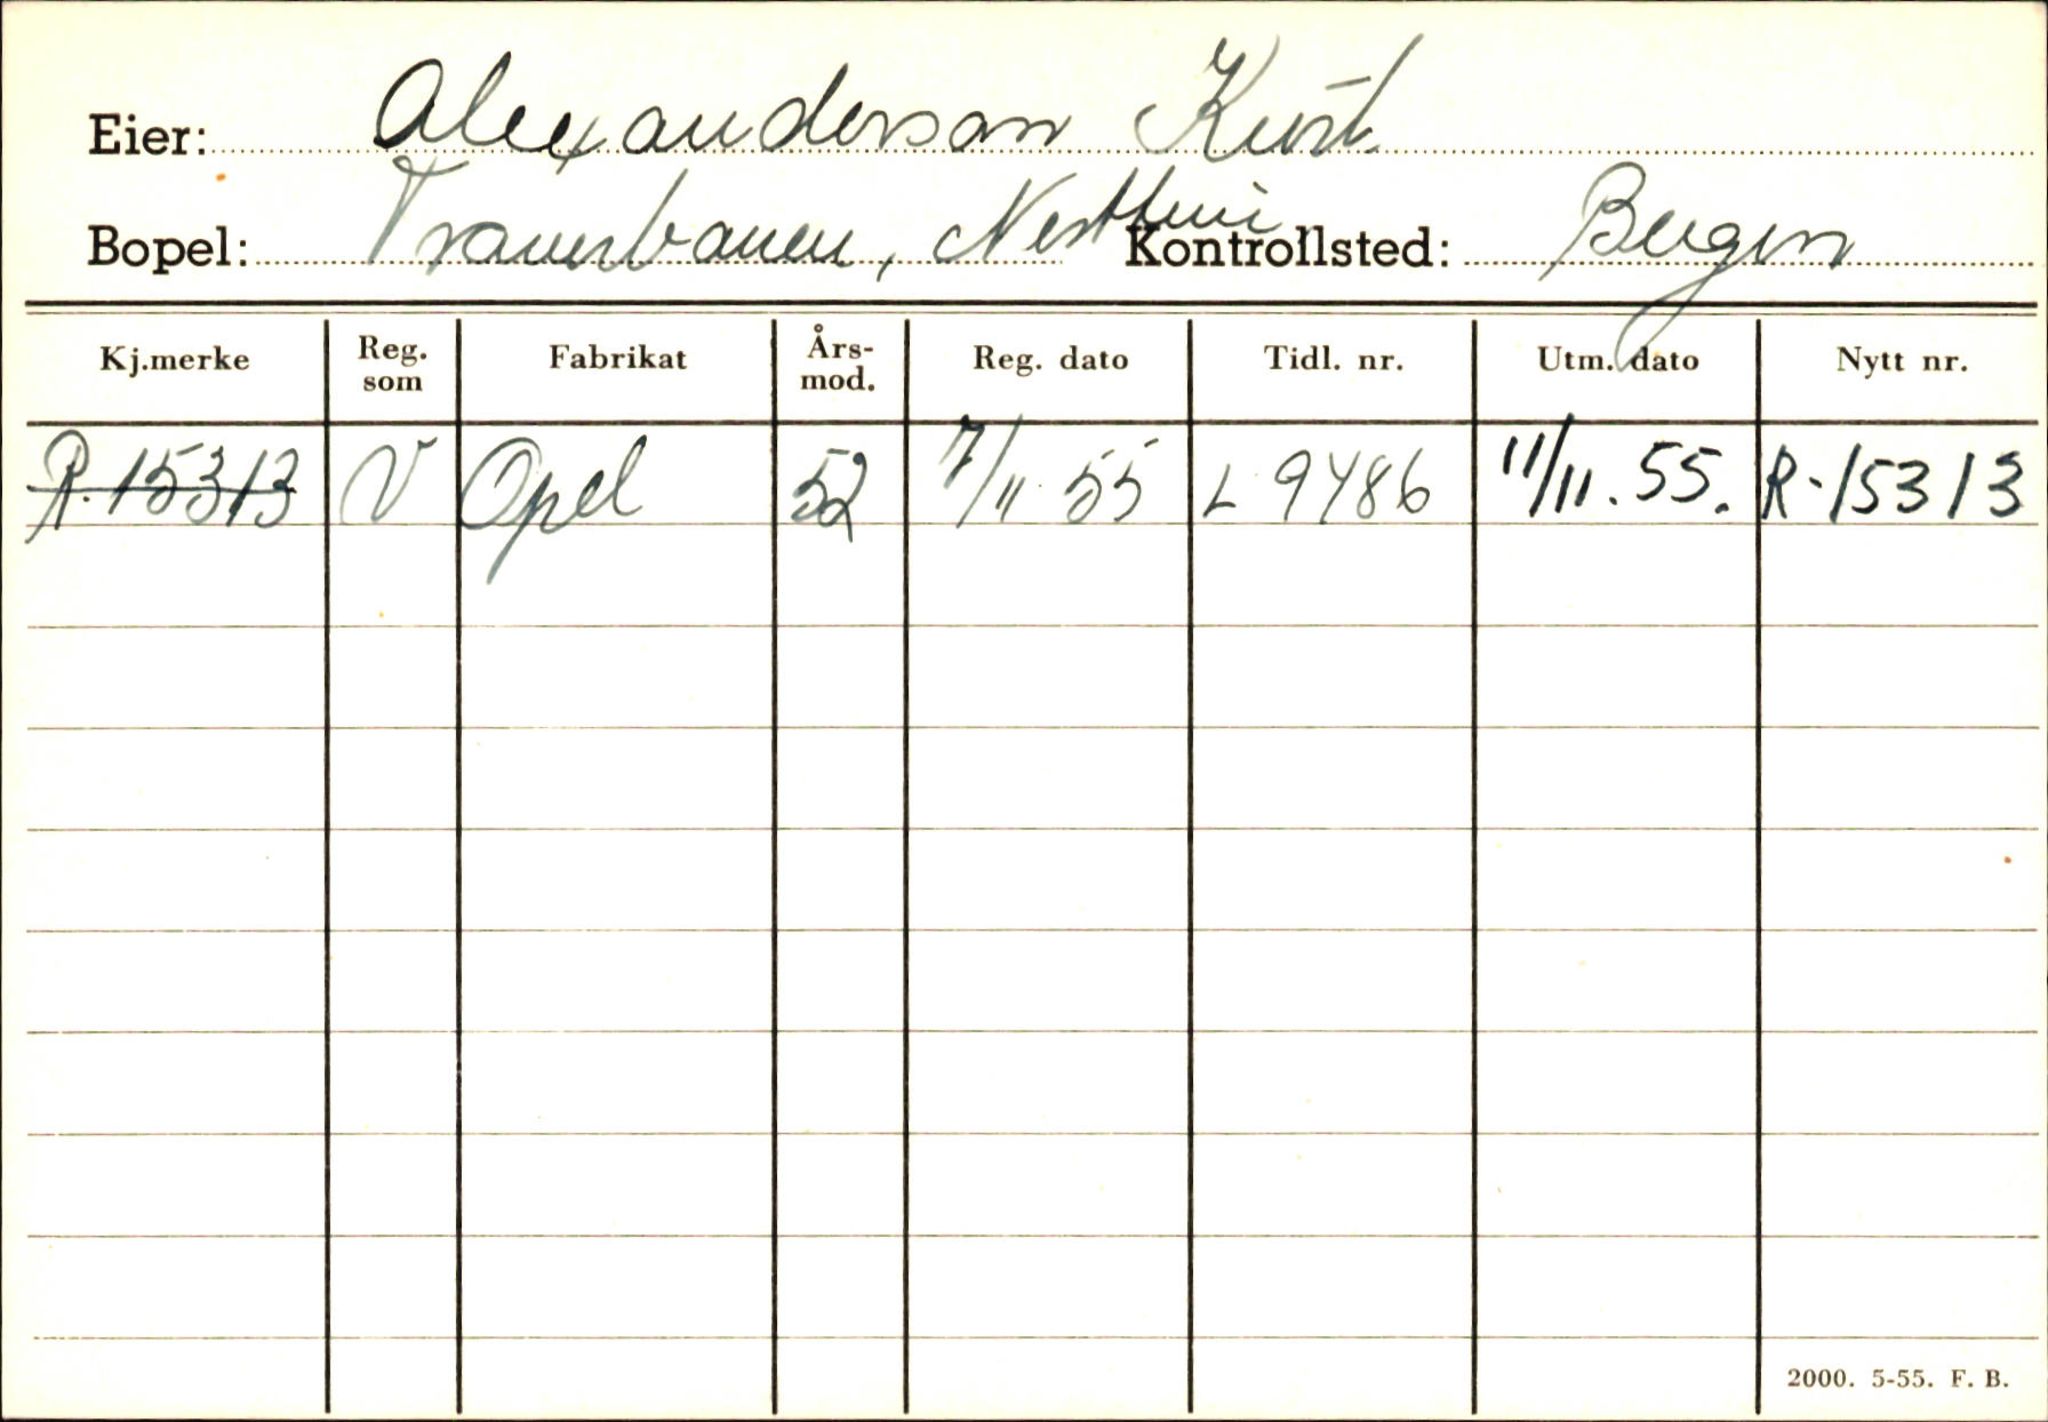 Eier: Alexanderson Kurt
Bopel: Tranevbanen, Nesttun Kontrollsted: Bergen
Kj.merke Reg. som Fabrikat Års-mod. Reg. dato Tidl. nr. Utm. dato Nytt nr.
R.15313 V Opel 52 7/11 55 L 9486 11/11.55. R-15313
2000. 5-55. F. B.